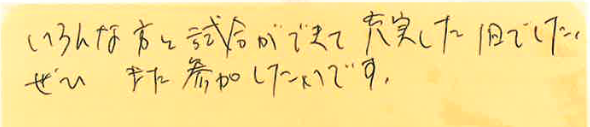 いろんな方と試合ができて充実した1日でした。
ぜひ また参加したいです。